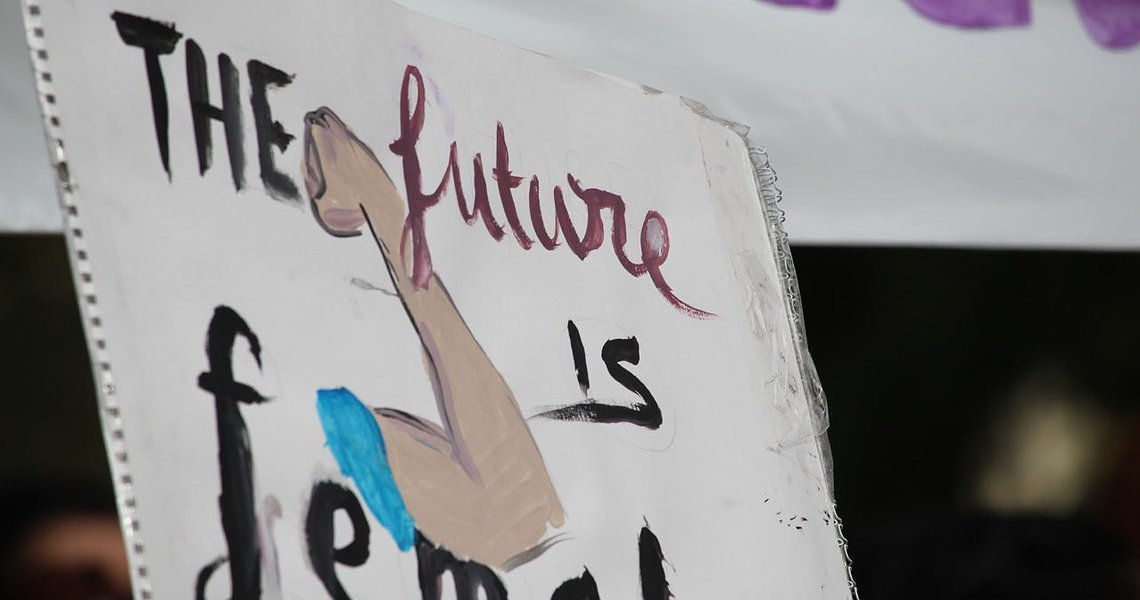 THE future
IS
femal